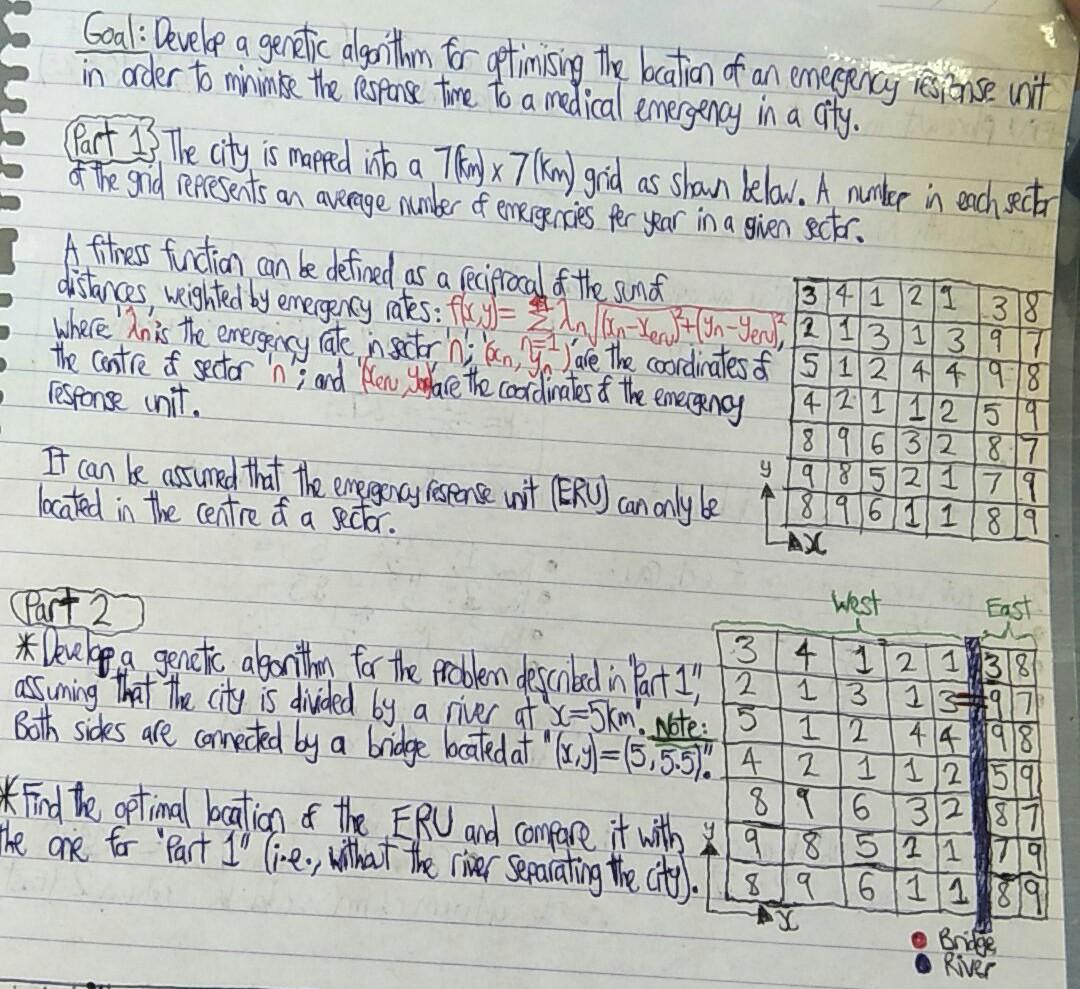 Goal: Develop a genetic algorithm for optimising the location of an emergency response unit
in order to minimise the response time to a medical emergency in a city.
Part 1} The city is mapped into a 7(km) x 7(km) grid as shown below. A number in each sector
of the grid represents an average number of emergencies per year in a given sector.
A fitness function can be defined as a reciprocal of the sum of
distances, weighted by emergency rates: f(x,y) = Σ n=1 λn√(xn-xeru)²+(yn-yeru)²,
where 'λn' is the emergency rate in sector 'n'; '(xn, yn)' are the coordinates of
the centre of sector 'n'; and '(xeru, yeru)' are the coordinates of the emergency
response unit.
It can be assumed that the emergency response unit (ERU) can only be
located in the centre of a sector.
3 4 1 2 1 3 8
2 1 3 1 3 9 7
5 1 2 4 4 9 8
4 2 1 1 2 5 9
8 9 6 3 2 8 7
9 8 5 2 1 7 9
8 9 6 1 1 8 9
y
x
Part 2
* Develop a genetic algorithm for the problem described in "Part 1",
assuming that the city is divided by a river at "x=5km". Note:
Both sides are connected by a bridge located at "(x,y)=(5,5.5)".
* Find the optimal location of the ERU and compare it with
the one for "Part 1" (i.e., without the river separating the city).
West East
3 4 1 2 1 3 8
2 1 3 1 3 9 7
5 1 2 4 4 9 8
4 2 1 1 2 5 9
8 9 6 3 2 8 7
9 8 5 2 1 7 9
8 9 6 1 1 8 9
y
x
Bridge
River